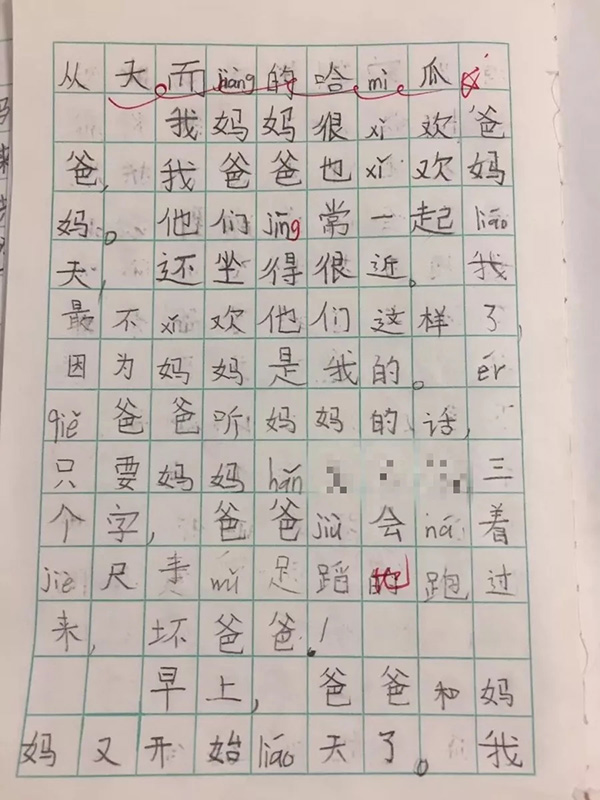 从天而jiàng的哈mì瓜
我妈妈很xǐ欢爸
爸，我爸爸也xǐ欢妈
妈。他们jīng常一起liáo
天，还坐得很近。我
最不xǐ欢他们这样了，
因为妈妈是我的。ér
qiě爸爸听妈妈的话，
只要妈妈hǎn 三
个字，爸爸jiù会ná着
jiè尺手wǔ足蹈地跑过
来，坏爸爸！
早上，爸爸和妈
妈又开始liáo天了。我